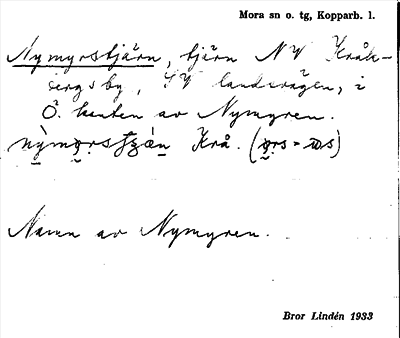 Mora sn o. tg, Kopparb. l.
Nymyrstjärn, tjärn NV Kråk-
bergsby, SV landsvägen, i
Ö. kanten av Nymyren.
Krå.
Namn av Nymyren.
Bror Lindén 1933